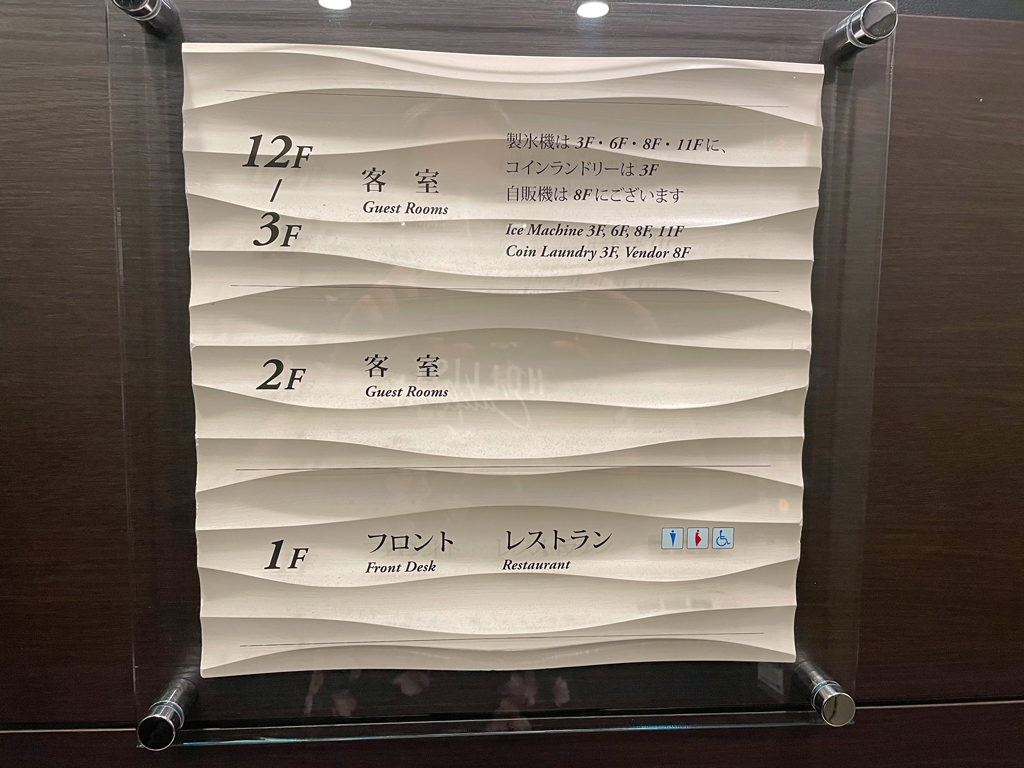 12F
/
3F
客 室
Guest Rooms
製氷機は 3F・6F・8F・11Fに、
コインランドリーは 3F
自販機は 8Fにございます
Ice Machine 3F, 6F, 8F, 11F
Coin Laundry 3F, Vendor 8F
2F
客 室
Guest Rooms
1F
フロント
Front Desk
レストラン
Restaurant